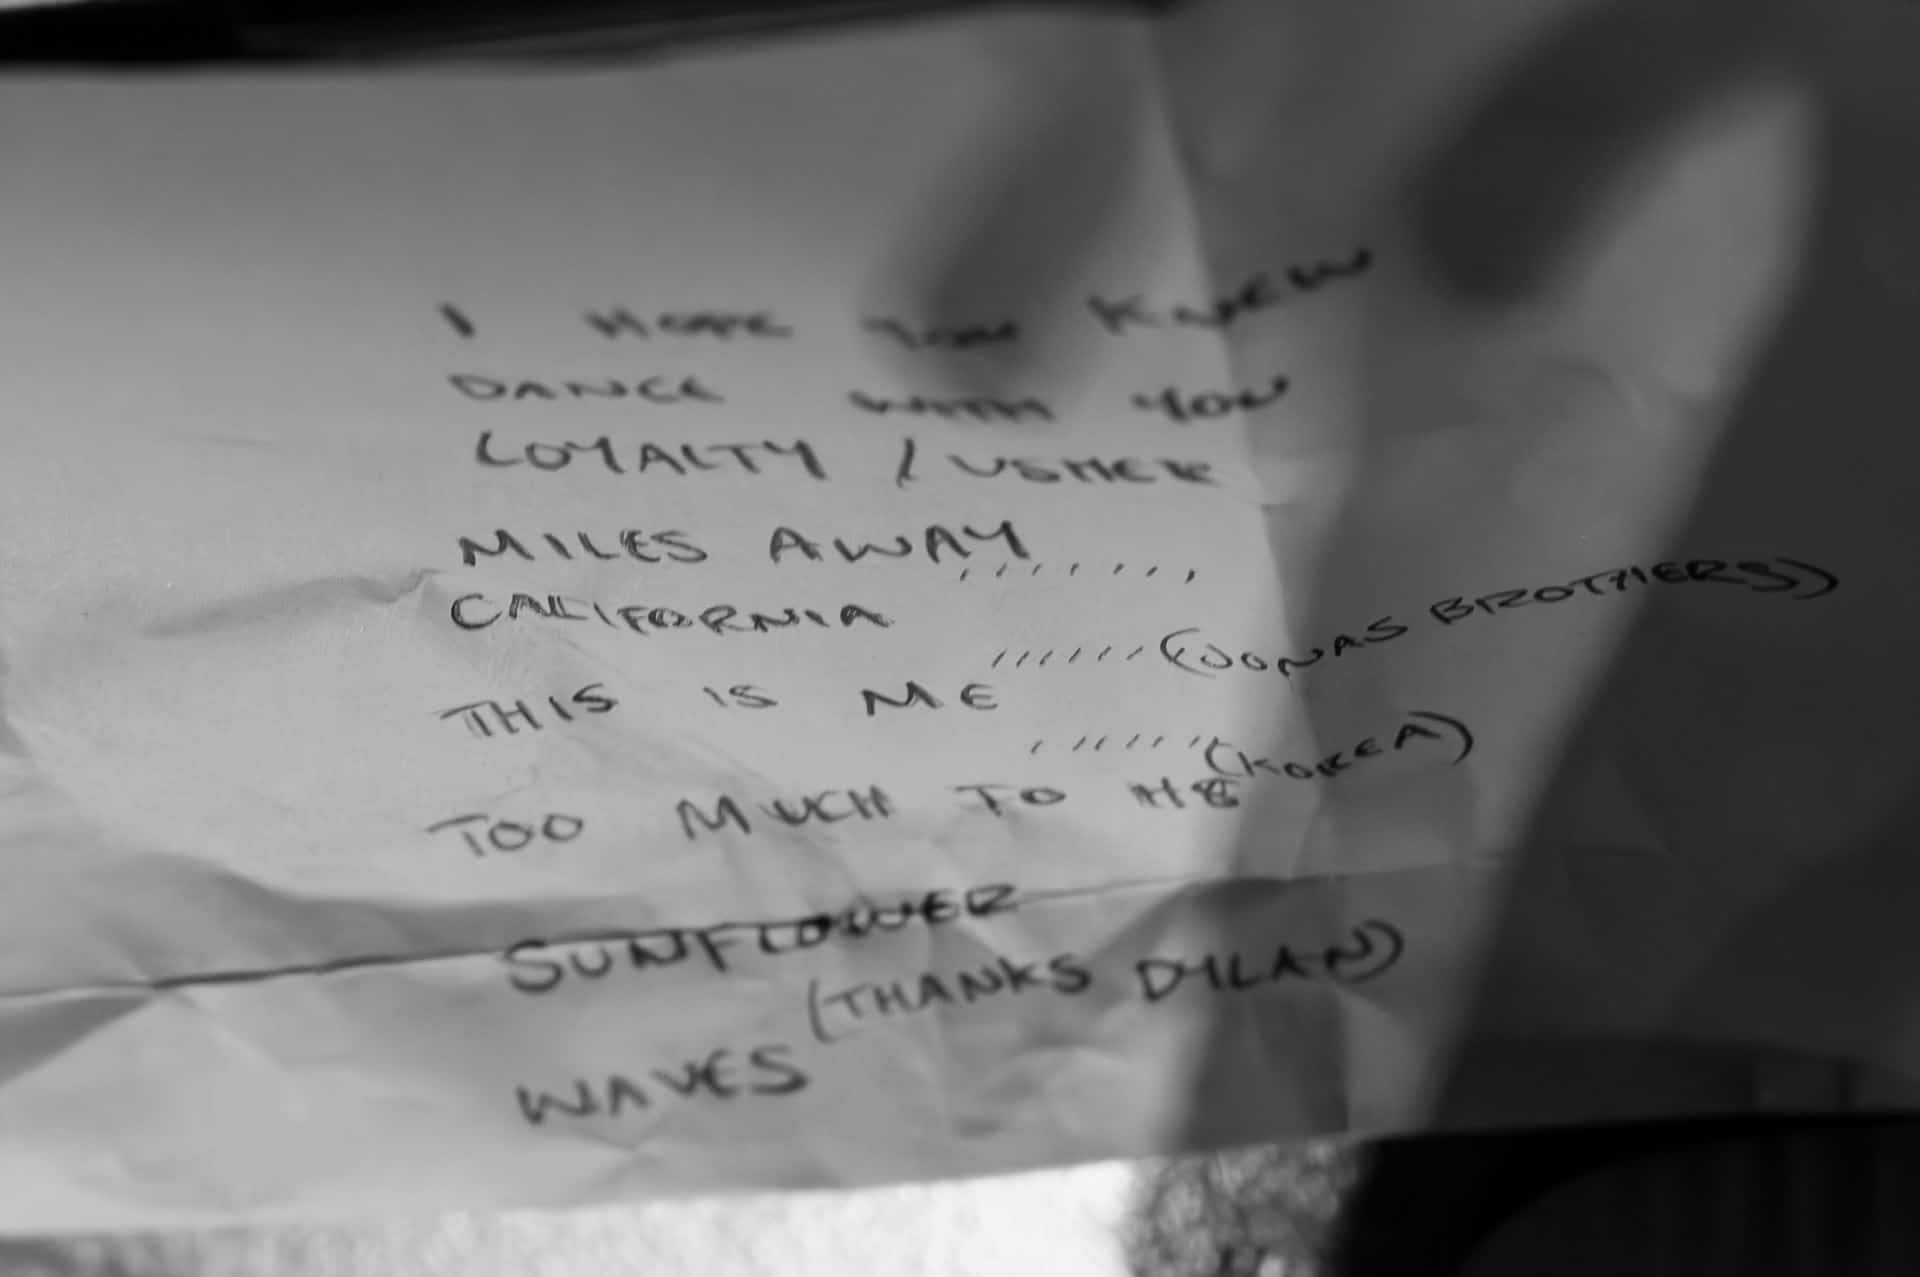 I HOPE YOU KNEW
DANCE WITH YOU
LOYALTY / USHER
MILES AWAY ........
CALIFORNIA
THIS IS ME ...... (JONAS BROTHERS)
TOO MUCH TO ME ...... (KOREA)
SUNFLOWER
(THANKS DYLAN)
WAVES